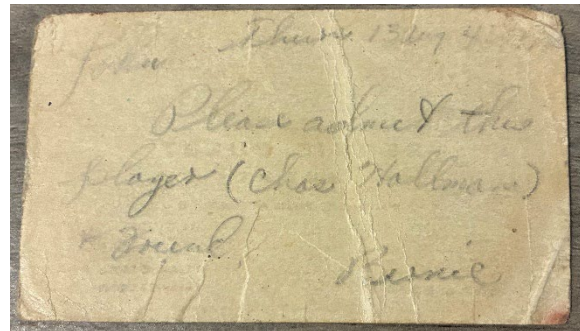 Thurs. 13 Aug 4
John
Please admit this
player (Chas Hallman)
+ friend
Bernie